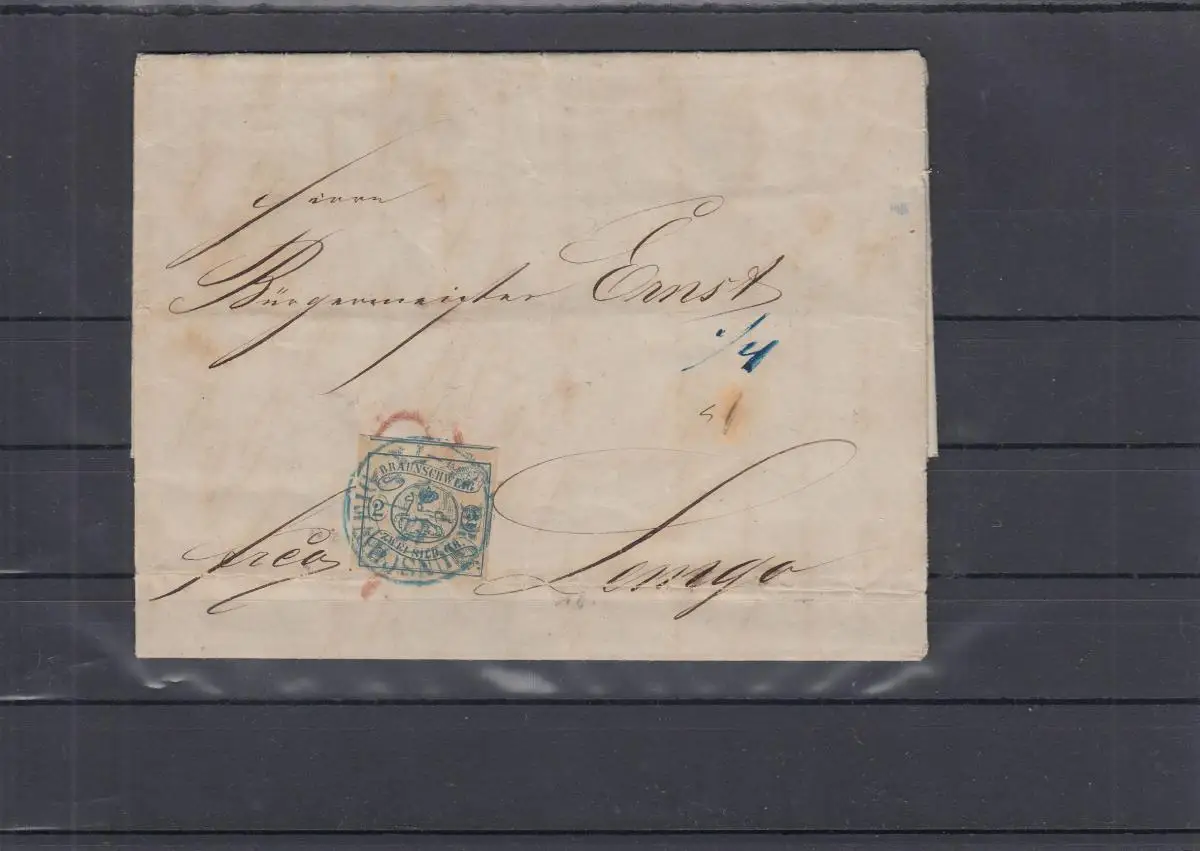 Herrn
Bürgermeister Ernst
/4
BRAUNSCHWEIG
2
ZWEI SILB. GR.
frco Lemgo